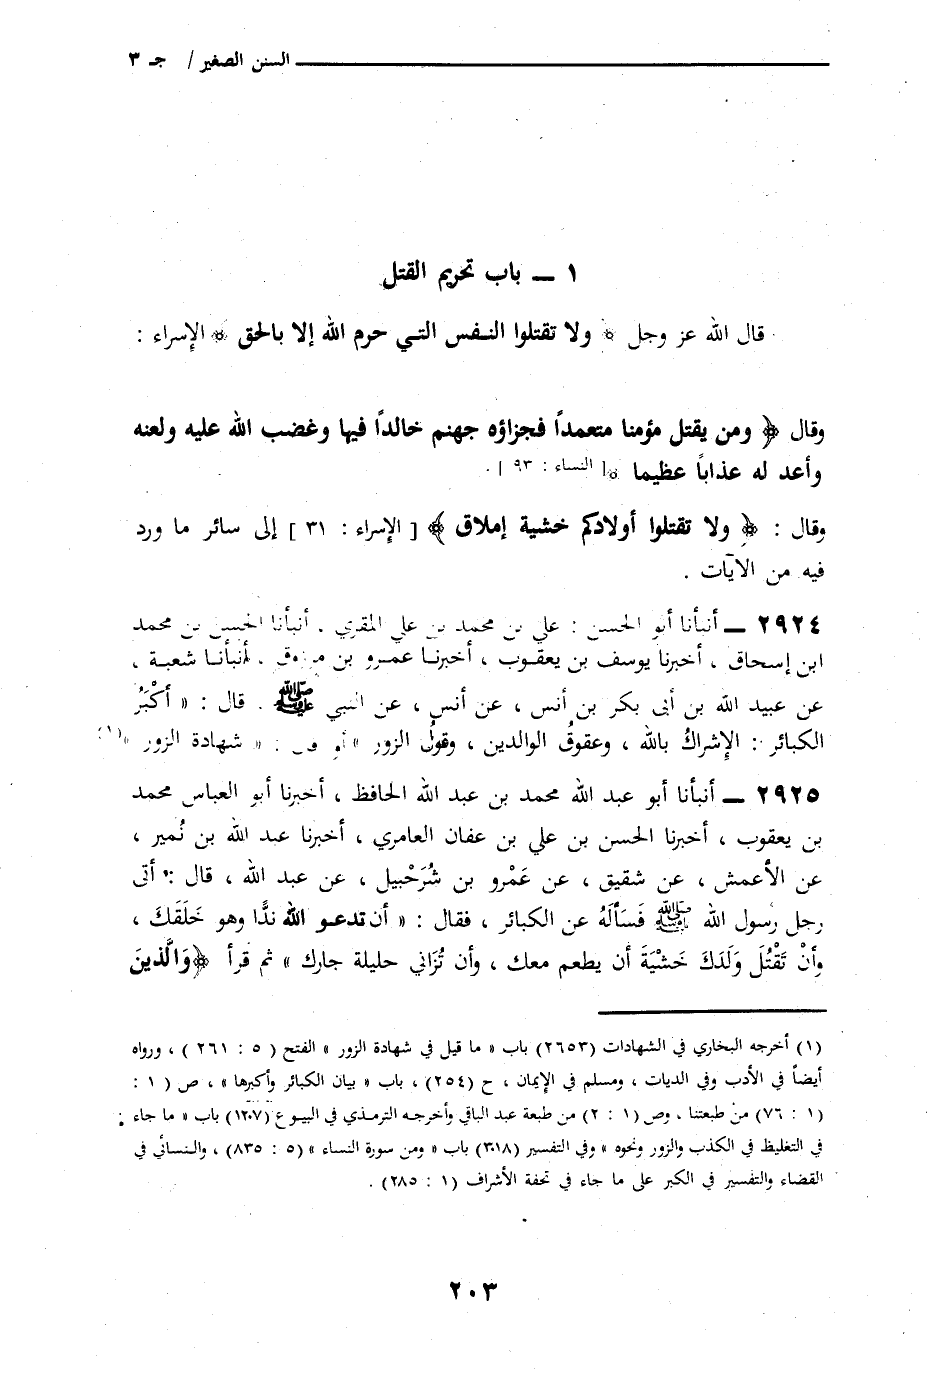 السنن الصغير / جـ ٣
١ ــ باب تحريم القتل
قال الله عز وجل ﴿ ولا تقتلوا النفس التي حرم الله إلا بالحق ﴾ الإسراء :
وقال ﴿ ومن يقتل مؤمنا متعمداً فجزاؤه جهنم خالداً فيها وغضب الله عليه ولعنه
وأعد له عذاباً عظيما ﴾ [ النساء : ٩٣ ] .
وقال : ﴿ ولا تقتلوا أولادكم خشية إملاق ﴾ [ الإسراء : ٣١ ] إلى سائر ما ورد
فيه من الآيات .
٢٩٢٤ ــ أنبأنا أبو الحسن : علي بن محمد بن علي المقري . أنبأنا الحسن بن محمد
ابن إسحاق ، أخبرنا يوسف بن يعقوب ، أخبرنا عمرو بن مرزوق . أنبأنا شعبة ،
عن عبيد الله بن أبى بكر بن أنس ، عن أنس ، عن النبي ﷺ . قال : « أكْبَرُ
الكبائر : الإشراكُ بالله ، وعقوقُ الوالدين ، وقولُ الزور » أو قال : « شهادة الزور »(١)
٢٩٢٥ ــ أنبأنا أبو عبد الله محمد بن عبد الله الحافظ ، أخبرنا أبو العباس محمد
بن يعقوب ، أخبرنا الحسن بن علي بن عفان العامري ، أخبرنا عبد الله بن نُمير ،
عن الأعمش ، عن شقيق ، عن عَمْرو بن شُرَحْبيل ، عن عبد الله ، قال : أتى
رجل رسول الله ﷺ فَسَألَهُ عن الكبائر ، فقال : « أن تدعو الله ندًّا وهو خَلَقَكَ ،
وأنْ تَقْتُلَ وَلَدَكَ خَشْيَةَ أن يطعم معك ، وأن تُزَاني حليلة جارك » ثم قرأ ﴿وَالَّذينَ
(١) أخرجه البخاري في الشهادات (٢٦٥٣) باب « ما قيل في شهادة الزور » الفتح ( ٥ : ٢٦١ ) ، ورواه
أيضاً في الأدب وفي الديات ، ومسلم في الإيمان ، ح (٢٥٤) ، باب « بيان الكبائر وأكبرها » ، ص ( ١ :
(١ : ٧٦) من طبعتنا ، وص (١ : ٢) من طبعة عبد الباقي وأخرجه الترمذي في البيوع (١٢٠٧) باب « ما جاء
في التغليظ في الكذب والزور ونحوه » وفي التفسير (٣٠١٨) باب « ومن سورة النساء » (٥ : ٨٣٥) ، والنسائي في
القضاء والتفسير في الكبر على ما جاء في تحفة الأشراف (١ : ٢٨٥) .
٢٠٣